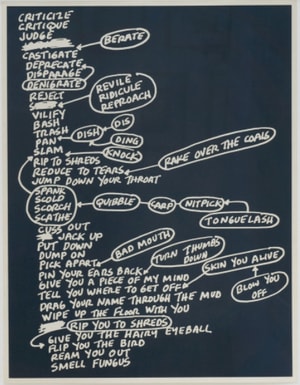 CRITICIZE
CRITIQUE
JUDGE
BERATE
CASTIGATE
DEPRECATE
DISPARAGE
DENIGRATE
REJECT
REVILE
RIDICULE
REPROACH
VILIFY
BASH
TRASH
DISH
DIS
PAN
DING
SLAM
KNOCK
RIP TO SHREDS
RAKE OVER THE COALS
REDUCE TO TEARS
JUMP DOWN YOUR THROAT
SPANK
SCOLD
SCORCH
QUIBBLE
CARP
NITPICK
SCATHE
TONGUELASH
CUSS OUT
JACK UP
PUT DOWN
BAD MOUTH
DUMP ON
TURN THUMBS
DOWN
PICK APART
SKIN YOU ALIVE
PIN YOUR EARS BACK
GIVE YOU A PIECE OF MY MIND
TELL YOU WHERE TO GET OFF
BLOW YOU
OFF
DRAG YOUR NAME THROUGH THE MUD
WIPE UP THE FLOOR WITH YOU
RIP YOU TO SHREDS
GIVE YOU THE HAIRY EYEBALL
FLIP YOU THE BIRD
REAM YOU OUT
SMELL FUNGUS